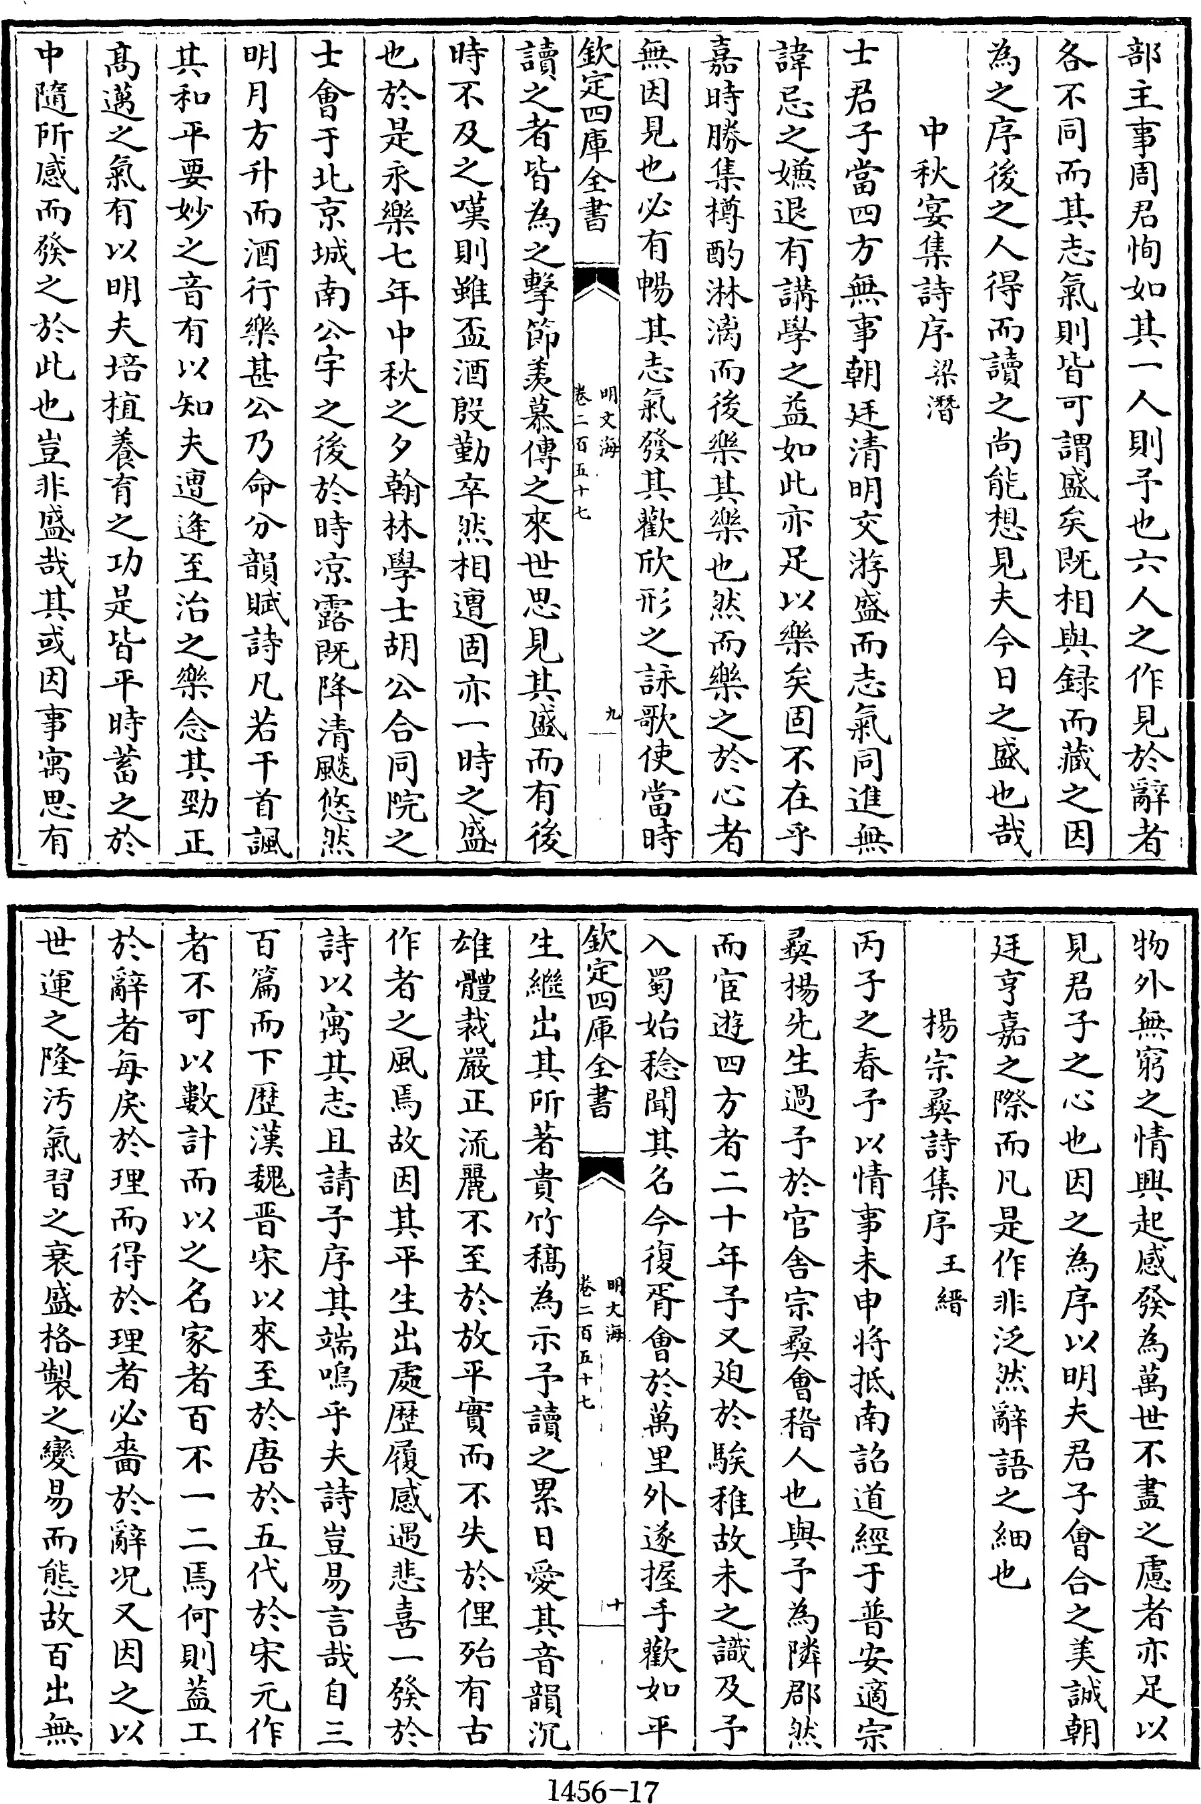 部主事周君恂如其一人則予也六人之作見於辭者
各不同而其志氣則皆可謂盛矣既相與録而藏之因
為之序後之人得而讀之尚能想見夫今日之盛也哉
中秋宴集詩序 梁潛
士君子當四方無事朝廷清明交游盛而志氣同進無
諱忌之嫌退有講學之益如此亦足以樂矣固不在乎
嘉時勝集樽酌淋漓而後樂其樂也然而樂之於心者
無因見也必有暢其志氣發其歡欣形之詠歌使當時
欽定四庫全書
明文海
卷二百五十七
九
讀之者皆為之擊節羨慕傳之來世思見其盛而有後
時不及之嘆則雖盃酒殷勤卒然相遭固亦一時之盛
也於是永樂七年中秋之夕翰林學士胡公合同院之
士會于北京城南公宇之後於時凉露既降清飈悠然
明月方升而酒行樂甚公乃命分韻賦詩凡若干首諷
其和平要妙之音有以知夫遭逢至治之樂念其勁正
髙邁之氣有以明夫培植養育之功是皆平時蓄之於
中隨所感而發之於此也豈非盛哉其或因事寓思有
物外無窮之情興起感發為萬世不盡之慮者亦足以
見君子之心也因之為序以明夫君子會合之美誠朝
廷亨嘉之際而凡是作非泛然辭語之細也
楊宗彛詩集序 王縉
丙子之春予以情事未申將抵南詔道經于普安適宗
彛楊先生過予於官舍宗彛會稽人也與予為隣郡然
而宦遊四方者二十年予又廹於騃稚故未之識及予
入蜀始稔聞其名今復胥會於萬里外遂握手歡如平
欽定四庫全書
明文海
卷二百五十七
十
生繼出其所著貴竹稿為示予讀之累日愛其音韻沉
雄體裁嚴正流麗不至於放平實而不失於俚殆有古
作者之風焉故因其平生出處歴履感遇悲喜一發於
詩以寓其志且請予序其端嗚乎夫詩豈易言哉自三
百篇而下歴漢魏晋宋以來至於唐於五代於宋元作
者不可以數計而以之名家者百不一二焉何則葢工
於辭者每戾於理而得於理者必嗇於辭况又因之以
世運之隆汚氣習之衰盛格製之變易而態故百出無
1456-17